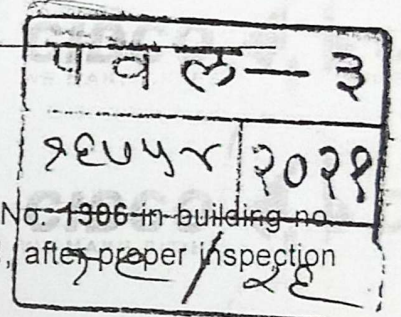 पवल — ३
१६७५४ २०२१
No. 1306 in building no.
, after proper inspection
/ २६